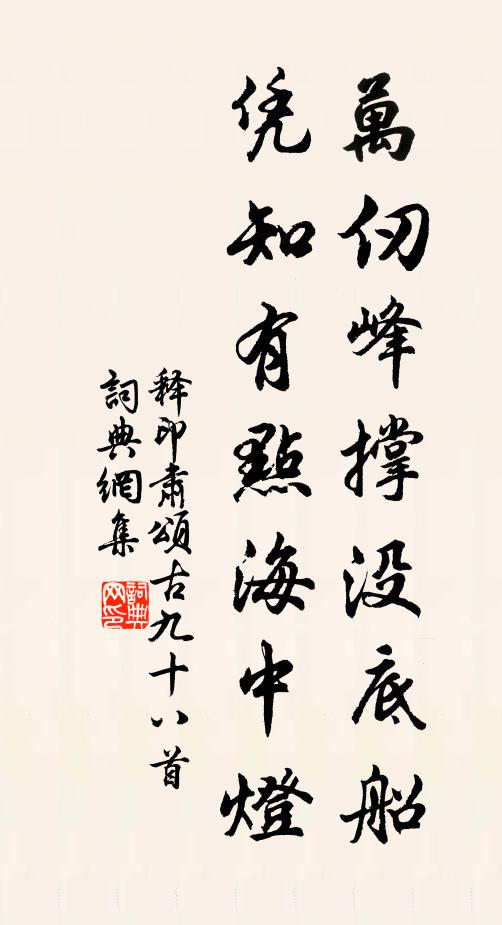 萬仞峰撑没底船
凭知有點海中燈
释印肅頌古九十八首
詞典網集
詞典网印